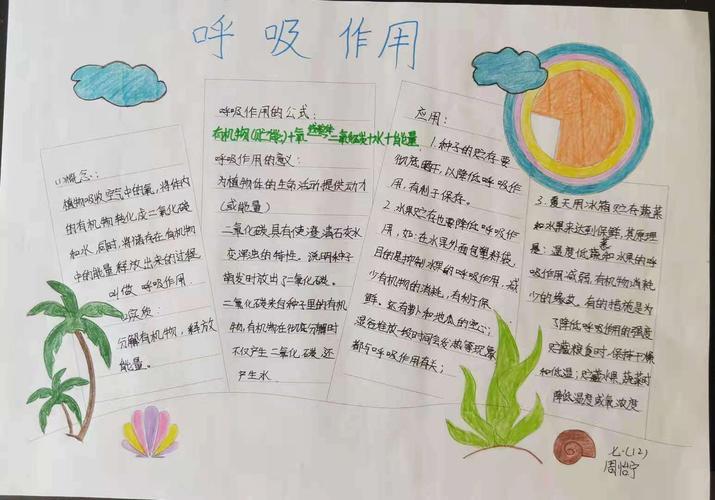 呼吸作用
(1)概念:
植物吸收空气中的氧,将体内
的有机物转化成二氧化碳
和水,同时,将储存在有机物
中的能量释放出来的过程
叫做 呼吸作用
(2)实质:
分解有机物,释放
能量。
呼吸作用的公式:
有机物(贮存能)+氧 → 二氧化碳+水+能量
呼吸作用的意义:
为植物体的生命活动提供动力
(或能量)
二氧化碳具有使澄清石灰水
变浑浊的特性。说明种子
萌发时放出了二氧化碳。
二氧化碳来自种子里的有机
物,有机物在彻底分解时
不仅产生二氧化碳,还
产生水
应用:
1.种子的贮存要
彻底晒干,以降低呼吸作
用,有利于保存。
2.水果贮存也要降低呼吸作
用,如:在水果外面包塑料袋,
目的是抑制水果的呼吸作用,减
少有机物的消耗,有利于保
鲜。还有萝卜和地瓜的空心;
湿谷堆放一段时间会发热等现象
都与呼吸作用有关;
3.夏天用冰箱贮存蔬菜
和水果来达到保鲜,其原理
是:温度低蔬和水果的呼
吸作用减弱,有机物消耗
少的缘故。有的措施是为
了降低呼吸作用的强度
贮藏粮食时,保持干燥
和低温;贮藏水果、蔬菜时
降低温度或氧浓度
七.(12)
周怡宁